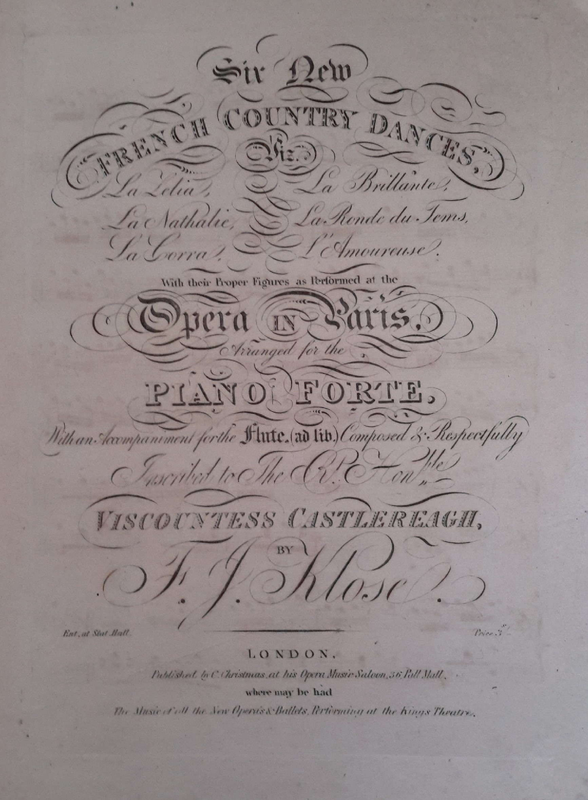 Six New
FRENCH COUNTRY DANCES,
Viz.
La Zelia, La Brillante,
La Nathalie, La Ronde du Tems,
La Gorra, L'Amoureuse.
With their Proper Figures as Performed at the
Opera IN Paris,
Arranged for the
PIANO FORTE,
With an Accompaniment for the Flute, (ad lib.) Composed & Respectfully
Inscribed to The Rt. Honble.
VISCOUNTESS CASTLEREAGH,
BY
F. J. Klose.
Ent. at Stat. Hall. Price 3/
LONDON,
Published by C. Christmas, at his Opera Music Saloon, 36 Pall Mall,
where may be had
The Music of all the New Opera's & Ballets, Performing at the Kings Theatre.